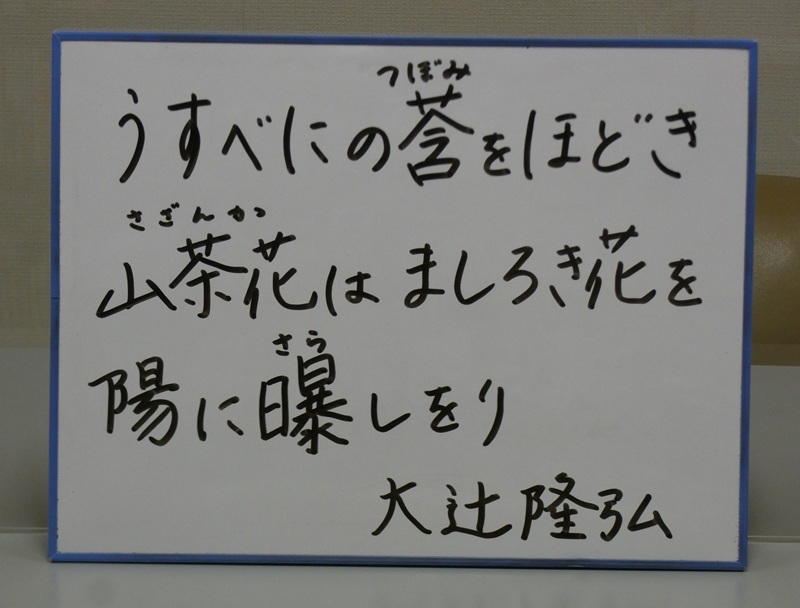 つぼみ
うすべにの莟をほどき
さざんか
山茶花は ましろき花を
さら
陽に曝しをり
大辻隆弘